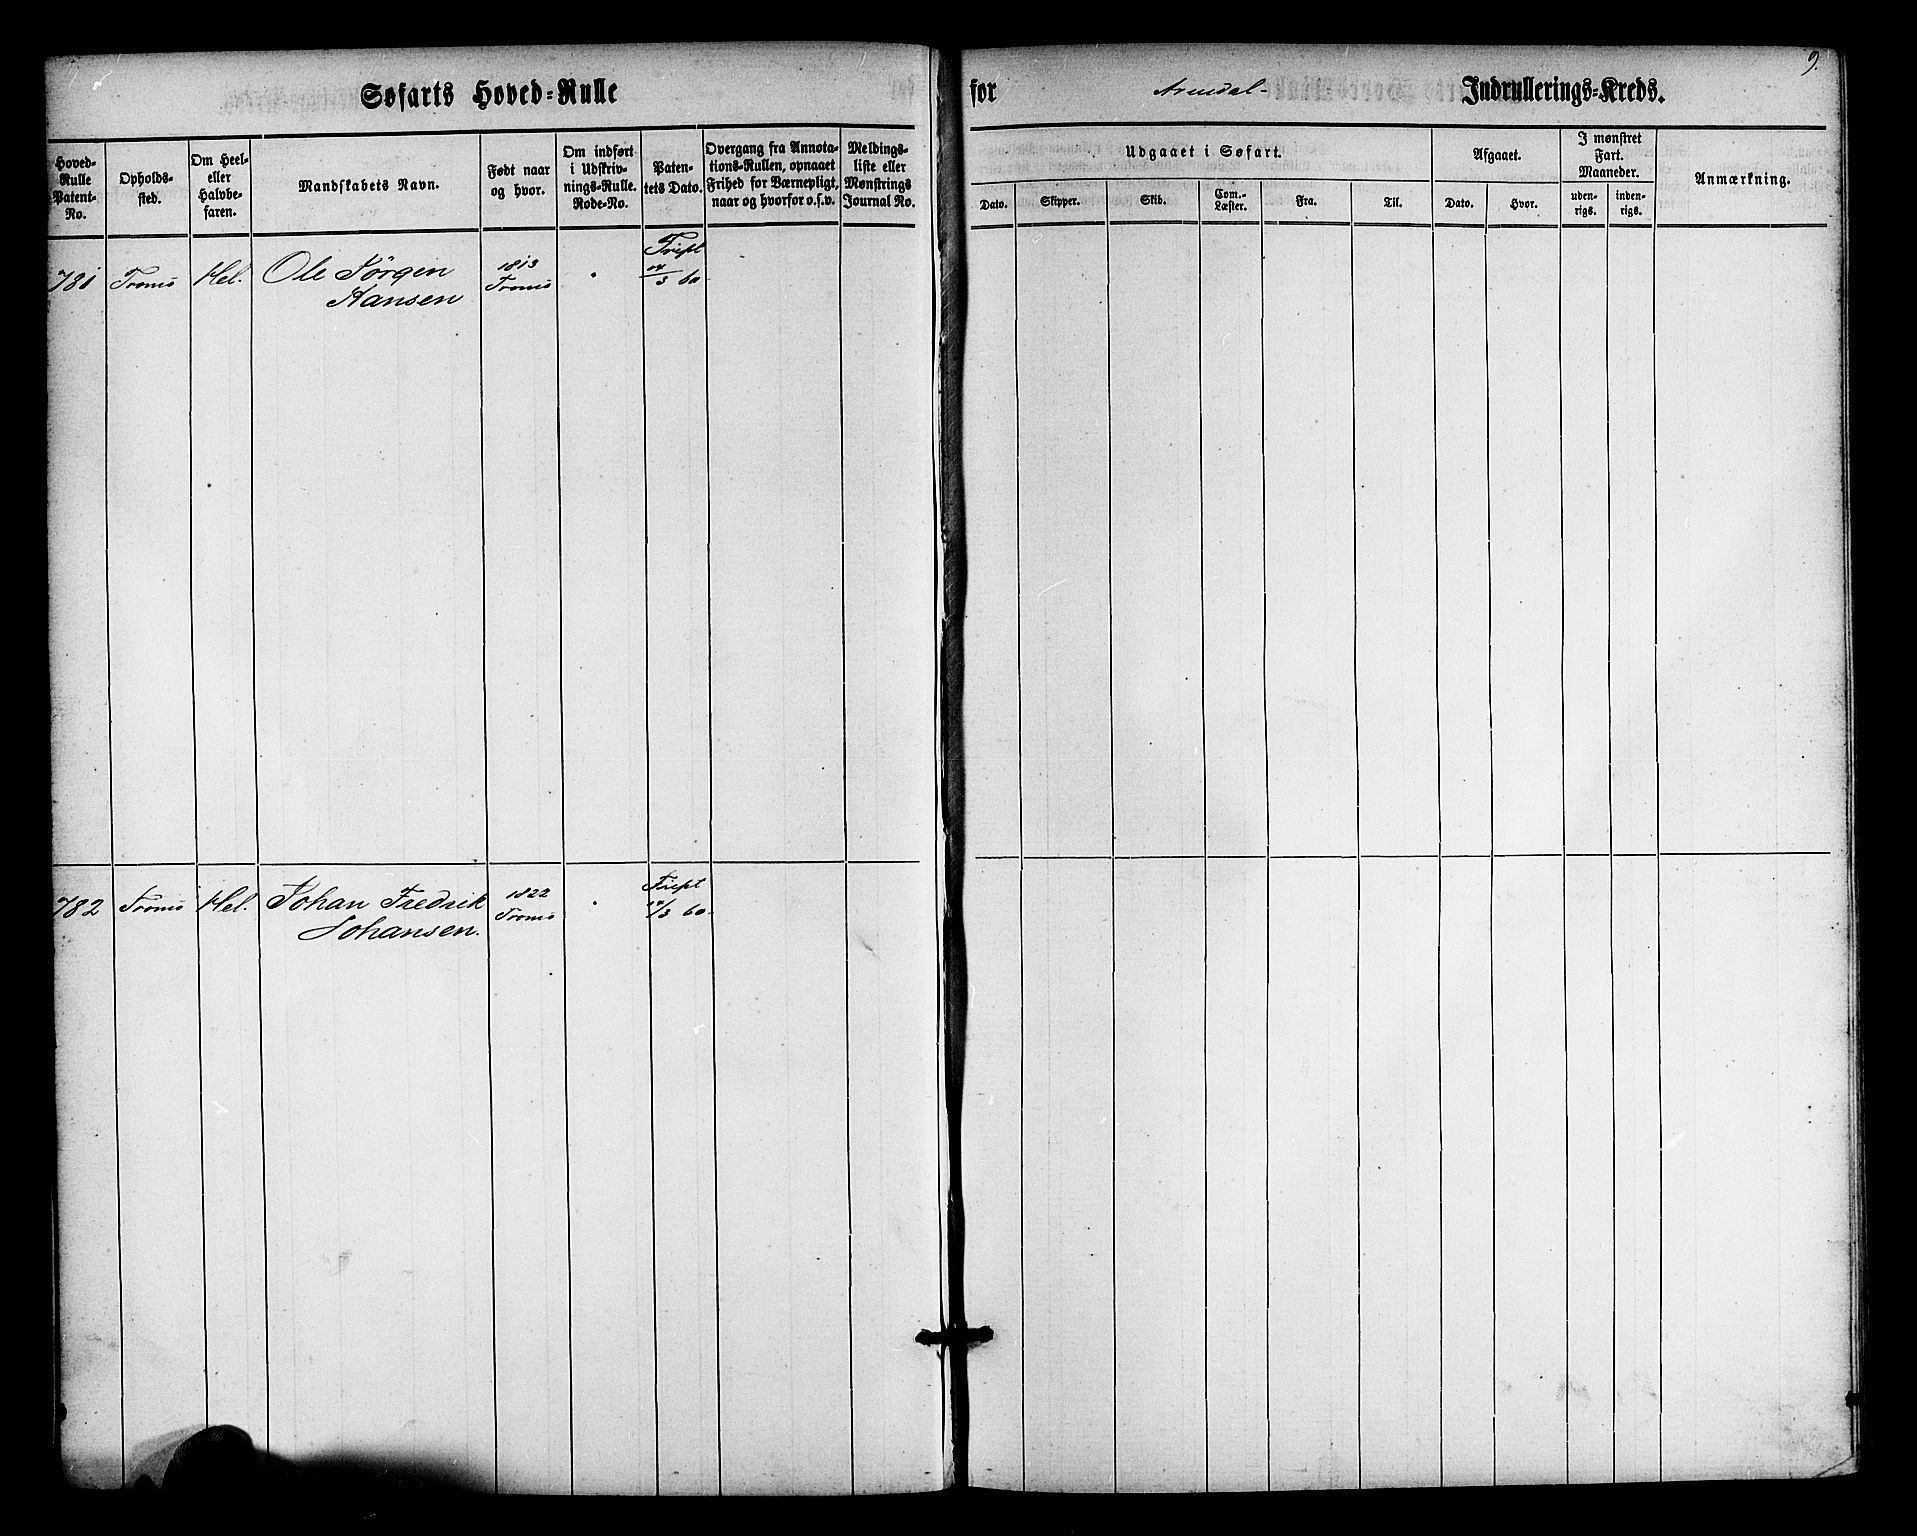 Søfarts Hoved-Rulle for Arendal Indrullerings-Kreds.
9.
Hoved-
Rulle
Patent-
No.
Opholds-
sted.
Om Heel-
eller
Halvbe-
faren.
Mandskabets Navn.
Født naar
og hvor.
Om indført
i Udskriv-
nings-Rulle.
Rode-No.
Paten-
tets Dato.
Overgang fra Annota-
tions-Rullen, opnaaet
Frihed for Værnepligt,
naar og hvorfor o.s.v.
Meldings-
liste eller
Mønstrings
Journal No.
Udgaaet i Søfart.
Dato.
Skipper.
Skib.
Com.-
Læster.
Fra.
Til.
Afgaaet.
Dato.
Hvor.
I mønstret
Fart.
Maaneder.
uden-
rigs.
inden-
rigs.
Anmærkning.
781 Tromø Hel. Ole Jörgen
Hansen
1813
Tromø
3 60
782 Tromø Hel. Johan Fredrik
Johansen.
1822
Tromø
/3 60